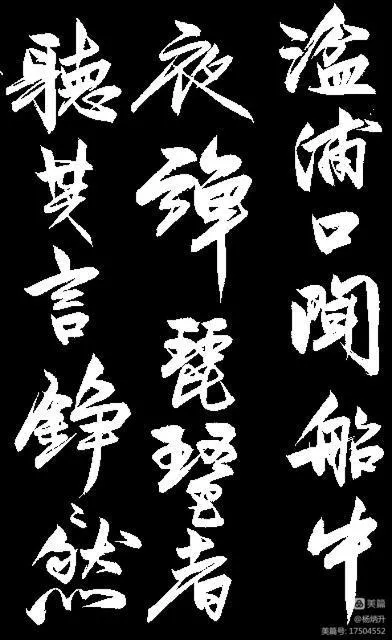 湓浦口聞船中
夜彈琵琶者
聽其言錚然
美篇
@杨炳升
美篇号: 17504552